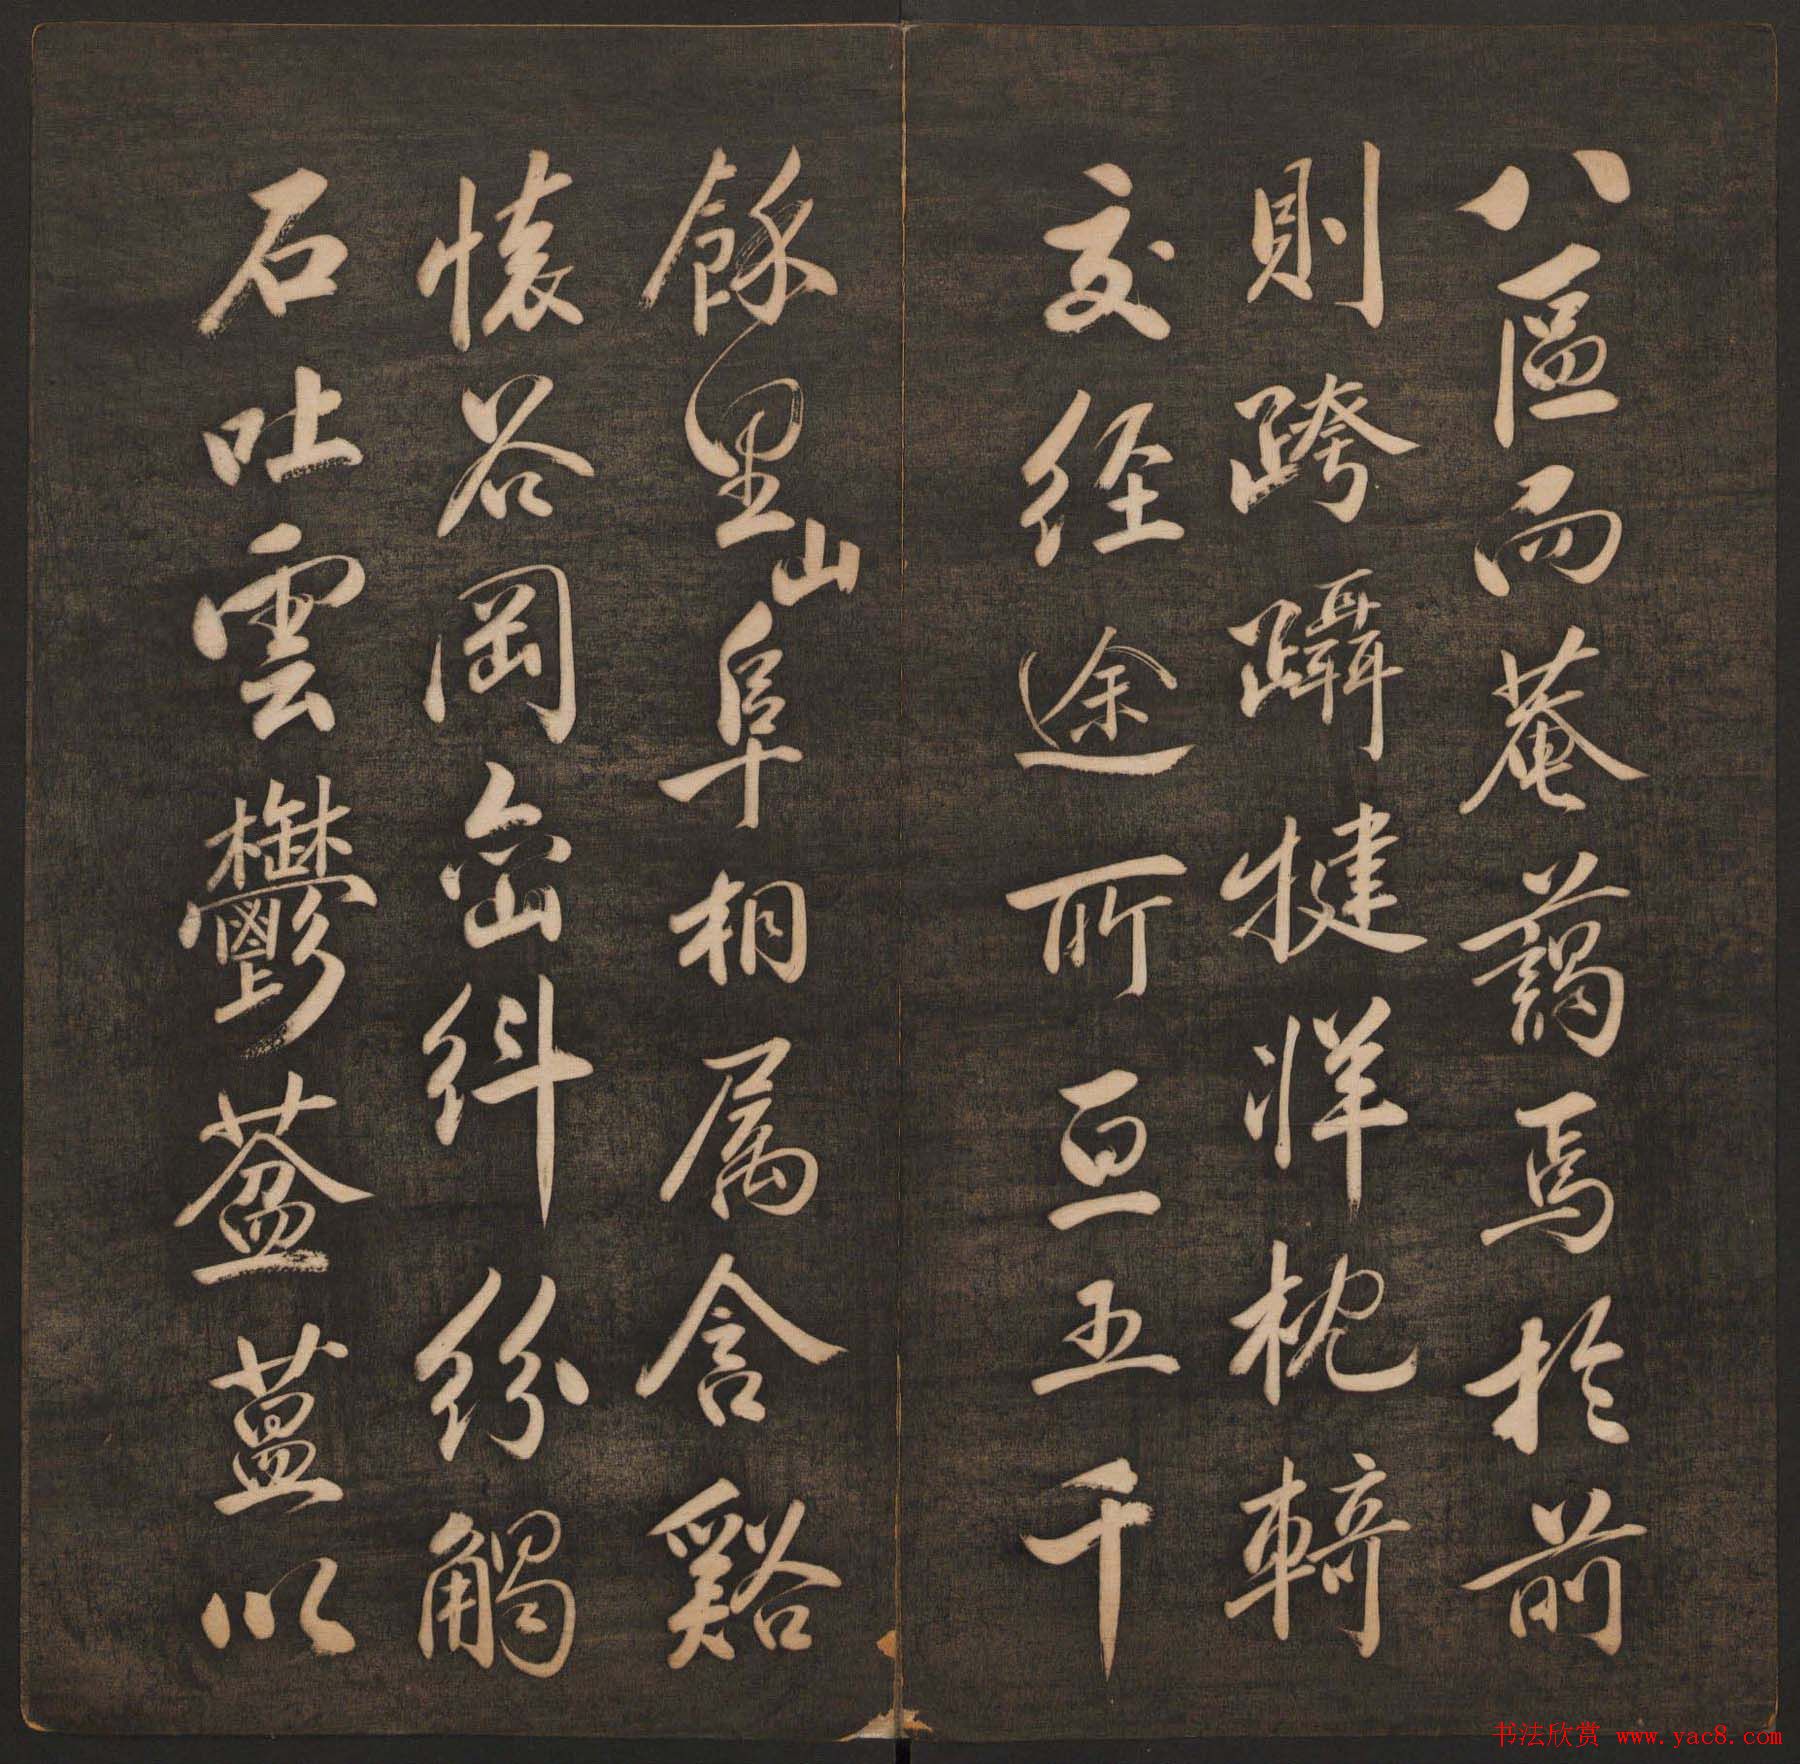 八區而菴藹焉於前
則跨躡犍牂枕輢
交經途所亙五千
餘里山阜相属含谿
懷谷岡巒糾紛觸
石吐雲鬱葐蒀以
书法欣赏 www.yac8.com